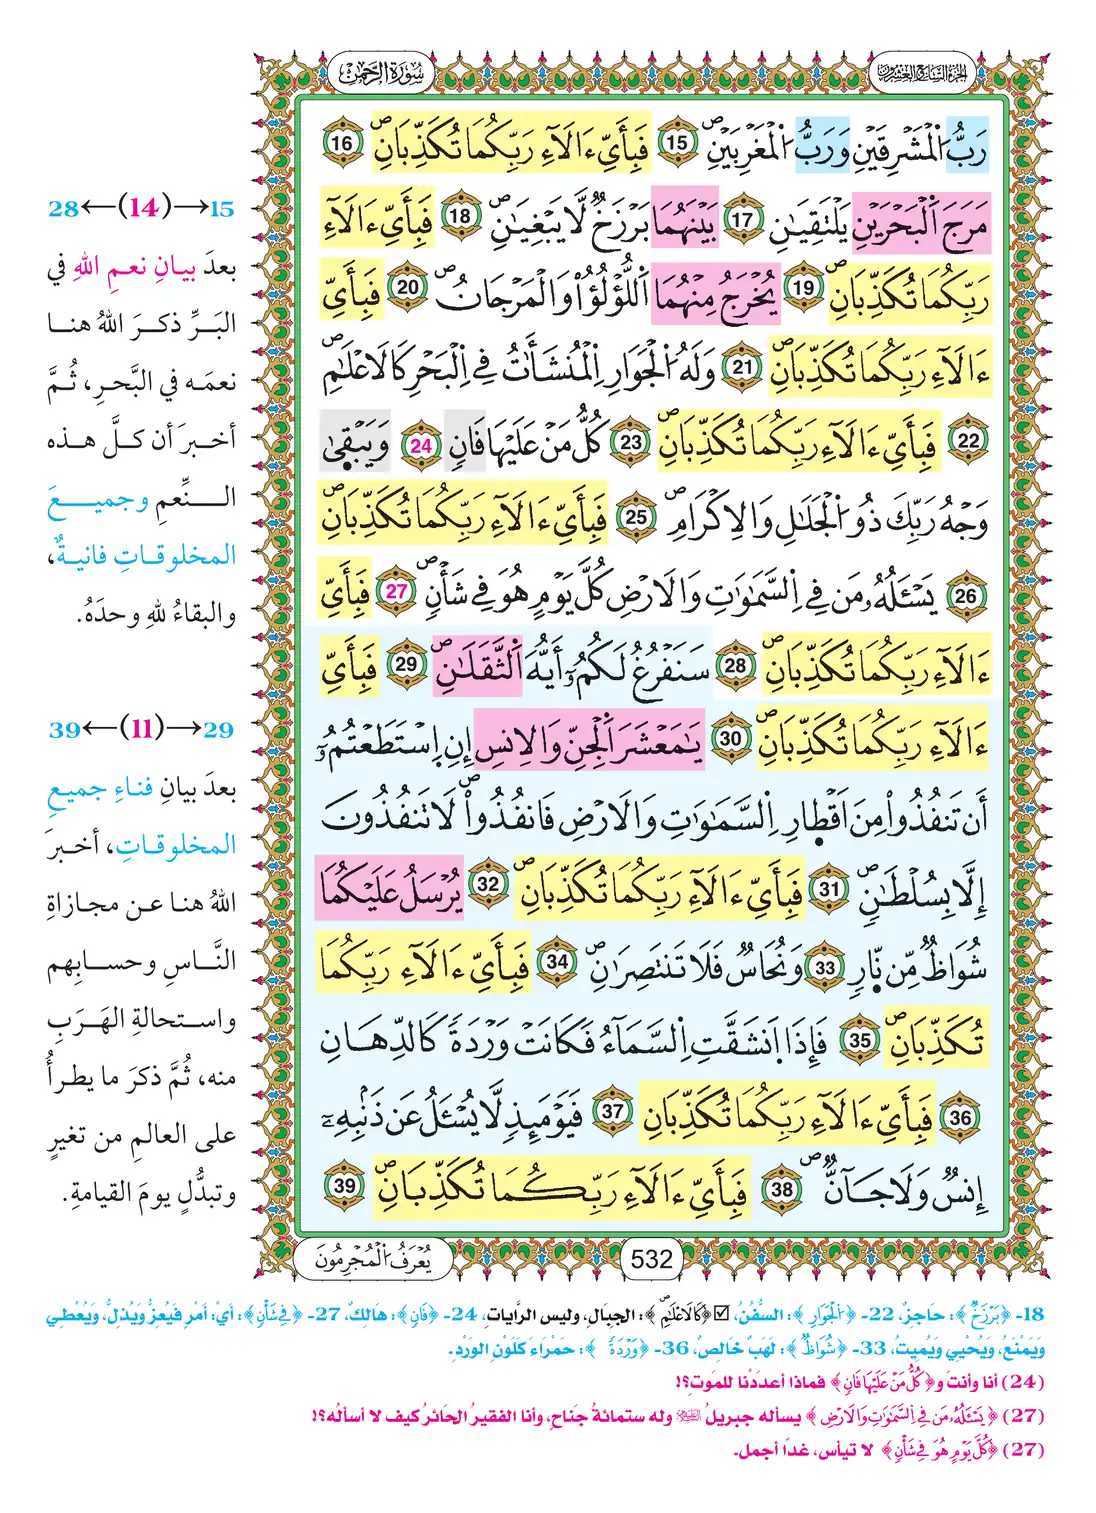 الجزء السابع والعشرون
سورة الرحمن
رَبُّ اُ۬لْمَشْرِقَيْنِ وَرَبُّ اُ۬لْمَغْرِبَيْنِۖ 15 فَبِأَيِّ ءَالَآءِ رَبِّكُمَا تُكَذِّبَانِۖ 16
مَرَجَ اَ۬لْبَحْرَيْنِ يَلْتَقِيَٰنِ 17 بَيْنَهُمَا بَرْزَخٌ لَّا يَبْغِيَٰنِۖ 18 فَبِأَيِّ ءَالَآءِ
رَبِّكُمَا تُكَذِّبَانِۖ 19 يُخْرَجُ مِنْهُمَا اَ۬للُّؤْلُؤُا وَالْمَرْجَانُۖ 20 فَبِأَيِّ
ءَالَآءِ رَبِّكُمَا تُكَذِّبَانِۖ 21 وَلَهُ اُ۬لْجَوَارِ اِ۬لْمُنشَـَٔاتُ فِے اِ۬لْبَحْرِ كَالَاعْلَٰمِۖ
22 فَبِأَيِّ ءَالَآءِ رَبِّكُمَا تُكَذِّبَانِۖ 23 كُلُّ مَنْ عَلَيْهَا فَانٖ 24 وَيَبْق۪ىٰ
وَجْهُ رَبِّكَ ذُو اُ۬لْجَلَٰلِ وَالِاكْرَامِۖ 25 فَبِأَيِّ ءَالَآءِ رَبِّكُمَا تُكَذِّبَانِۖ
26 يَسْـَٔلُهُۥ مَن فِے اِ۬لسَّمَٰوَٰتِ وَالَارْضِ كُلَّ يَوْمٍ هُوَ فِے شَأْنٖۖ 27 فَبِأَيِّ
ءَالَآءِ رَبِّكُمَا تُكَذِّبَانِۖ 28 سَنَفْرُغُ لَكُمُۥٓ أَيُّهَ اَ۬لثَّقَلَٰنِۖ 29 فَبِأَيِّ
ءَالَآءِ رَبِّكُمَا تُكَذِّبَانِۖ 30 يَٰمَعْشَرَ اَ۬لْجِنِّ وَالِانسِ إِنِ اِ۪سْتَطَعْتُمُۥٓ
أَن تَنفُذُواْ مِنَ اَقْط۪ارِ اِ۬لسَّمَٰوَٰتِ وَالَارْضِ فَانفُذُواْۖ لَا تَنفُذُونَ
إِلَّا بِسُلْطَٰنٖۖ 31 فَبِأَيِّ ءَالَآءِ رَبِّكُمَا تُكَذِّبَانِۖ 32 يُرْسَلُ عَلَيْكُمَا
شُوَاظٌ مِّن نّ۪ارٖ 33 وَنُحَاسٌ فَلَا تَنتَصِرَانِۖ 34 فَبِأَيِّ ءَالَآءِ رَبِّكُمَا
تُكَذِّبَانِۖ 35 فَإِذَا اَ۪نشَقَّتِ اِ۬لسَّمَآءُ فَكَانَتْ وَرْدَةٗ كَالدِّهَانِ
36 فَبِأَيِّ ءَالَآءِ رَبِّكُمَا تُكَذِّبَانِ 37 فَيَوْمَئِذٖ لَّا يُسْـَٔلُ عَن ذَنۢبِهِۦٓ
إِنسٌ وَلَا جَآنٌّۖ 38 فَبِأَيِّ ءَالَآءِ رَبِّكُمَا تُكَذِّبَانِۖ 39
532
يُعْرَفُ اُ۬لْمُجْرِمُونَ
15→(14)←28
بعدَ بيانِ نعمِ اللهِ في
البَرِّ ذكرَ اللهُ هنا
نعمَه في البَّحرِ، ثُمَّ
أخبرَ أن كلَّ هذه
النِّعمِ وجميعَ
المخلوقاتِ فانيةٌ،
والبقاءُ للهِ وحدَهُ.
29→(11)←39
بعدَ بيانِ فناءِ جميعِ
المخلوقاتِ، أخبرَ
اللهُ هنا عن مجازاةِ
النَّاسِ وحسابِهم
واستحالةِ الهَرَبِ
منه، ثُمَّ ذكرَ ما يطرأُ
على العالمِ من تغيرٍ
وتبدُّلٍ يومَ القيامةِ.
18- ﴿بَرْزَخٌ﴾: حَاجِزٌ، 22- ﴿اُ۬لْجَوَارِ﴾: السفُنُ، ☑﴿كَالَاعْلَٰمِ﴾: الجِبَالِ، وليس الرَّايات، 24- ﴿فَانٖ﴾: هَالِكٌ، 27- ﴿فِے شَأْنٖ﴾: أيْ: أمْرٍ فَيُعِزُّ وَيُذِلُّ، وَيُعْطِي
وَيَمْنَعُ، وَيُحْيِي وَيُمِيتُ، 33- ﴿شُوَاظٌ﴾: لَهَبٌ خَالِصٌ، 36- ﴿وَرْدَةٗ﴾: حَمْرَاءَ كَلَوْنِ الوَرْدِ.
(24) أنا وأنتَ و﴿كُلُّ مَنْ عَلَيْهَا فَانٖ﴾ فماذا أعدَدْنا للمَوتِ؟!
(27) ﴿يَسْـَٔلُهُۥ مَن فِے اِ۬لسَّمَٰوَٰتِ وَالَارْضِ﴾ يسأله جبريلُ عليه السلام وله ستمائةُ جَناحٍ، وأنا الفقيرُ الحَائرُ كيف لا أسألُه؟!
(27) ﴿كُلَّ يَوْمٍ هُوَ فِے شَأْنٖ﴾ لا تيأس، غدًا أجمل.